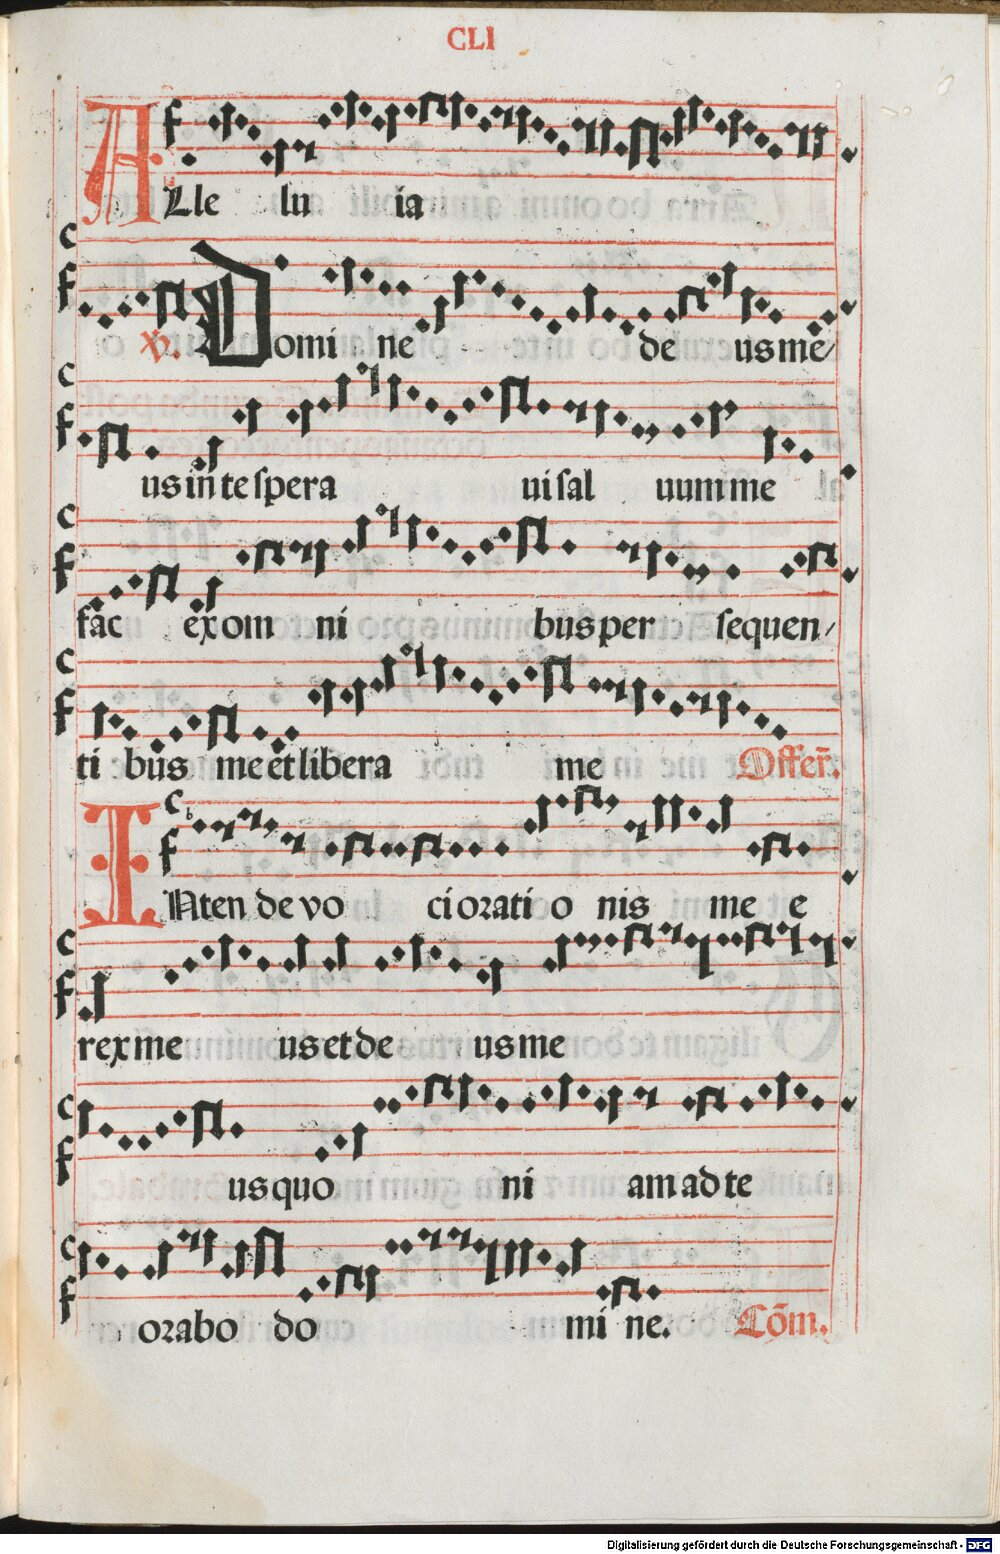 CLI
ALle lu ia
V. Domi ne de us me/
us in te spera ui sal uum me
fac ex om ni bus per sequen/
ti bus me et libera me Offer̄.
INten de vo ci orati o nis me e
rex me us et de us me
us quo ni am ad te
orabo do mi ne. Cōm.
Digitalisierung gefördert durch die Deutsche Forschungsgemeinschaft - DFG